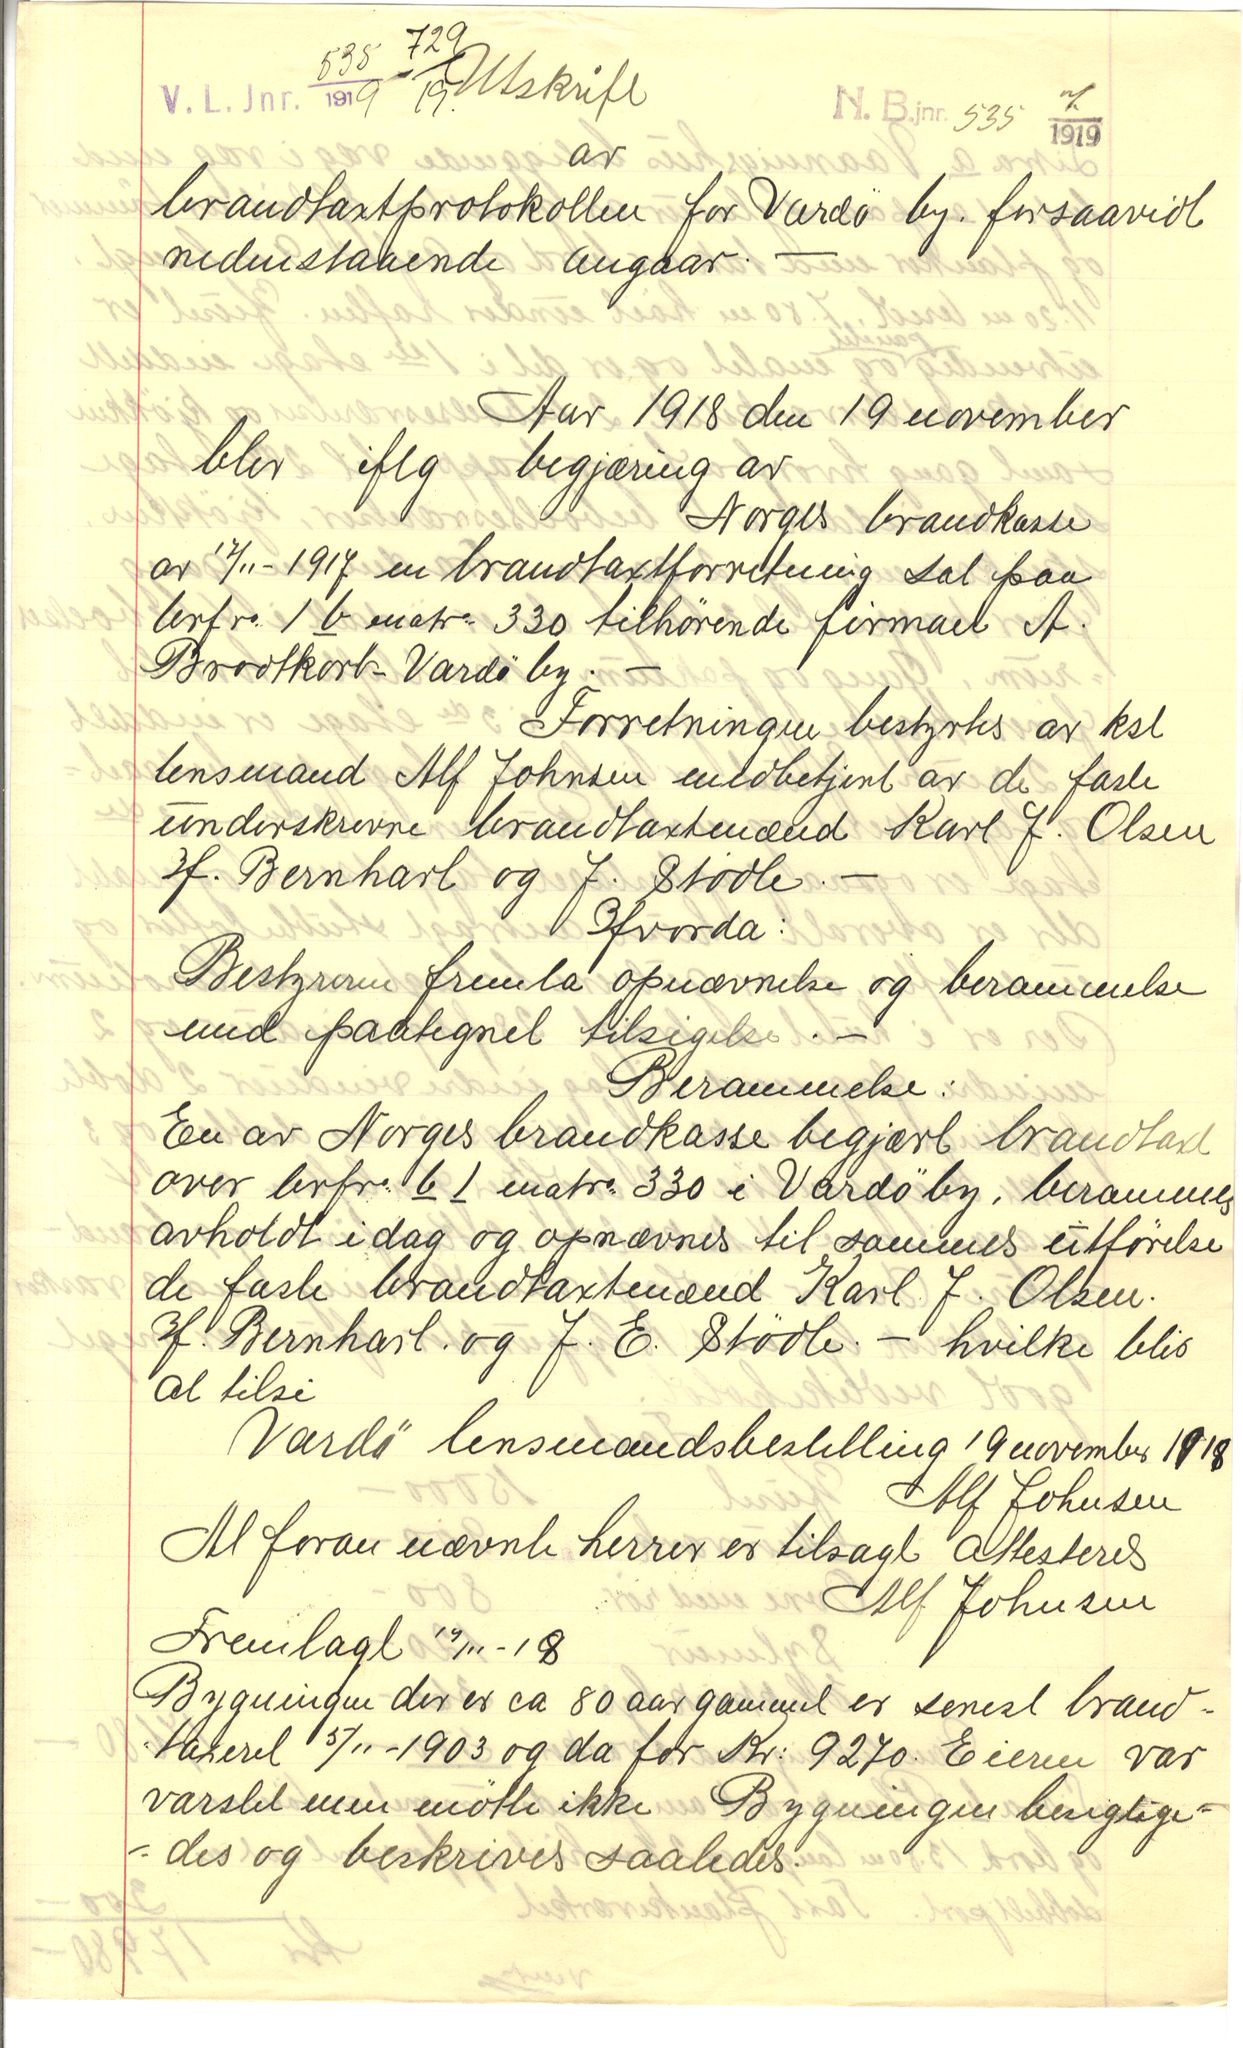 V. L. Jnr. 535/1919 - 729/19. Utskrift
N. B. jnr. 535 1919
av
brandtaxtprotokollen for Vardö by. forsaavidt
nedenstaaende angaar. —
Aar 1918 den 19 november
blev iflg begjæring av
Norges brandkasse
av 12/11 - 1917 en brandtaxtforretning sat paa
brfr. 1 b matr. 330 tilhörende firmaet A.
Brodtkorb - Vardö by. —
Forretningen bestyrtes av kst
lensmand Alf Johnsen medbetjent av de faste
underskrevne brandtaxtmænd Karl J. Olsen
H. Bernhart og J. Stödle. —
Hvorda:
Bestyreren fremla opnævnelse og berammelse
med paategnet tilsigelse. —
Berammelse:
En av Norges brandkasse begjært brandtaxt
over brfr. b 1 matr. 330 i Vardö by, berammes
avholdt idag og opnævnes til sammes utförelse
de faste brandtaxtmænd Karl J. Olsen.
H. Bernhart. og J. E. Stödle. — hvilke blir
at tilsi
Vardö lensmandsbestilling 19 november 1918
Alf Johnsen
At foran nævnte herrer er tilsagt attesteres
Alf Johnsen
Fremlagt 19/11 - 18
Bygningen der er ca 80 aar gammel er senest brand-
taxeret 5/11 - 1903 og da for Kr: 9270. Eieren var
varslet men mötte ikke Bygningen besigtige-
- des og beskrives saaledes.